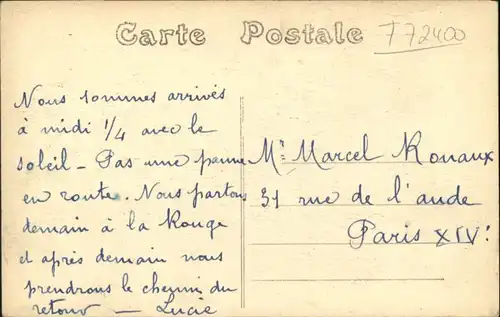 Carte Postale
T72400
Nous sommes arrivés
à midi 1/4 avec le
soleil - Pas une panne
en route. Nous partons
demain à la Rouge
et après demain nous
prendrons le chemin du
retour — Lucie
Mr. Marcel Rouaux
31 rue de l'aude
Paris XIV!